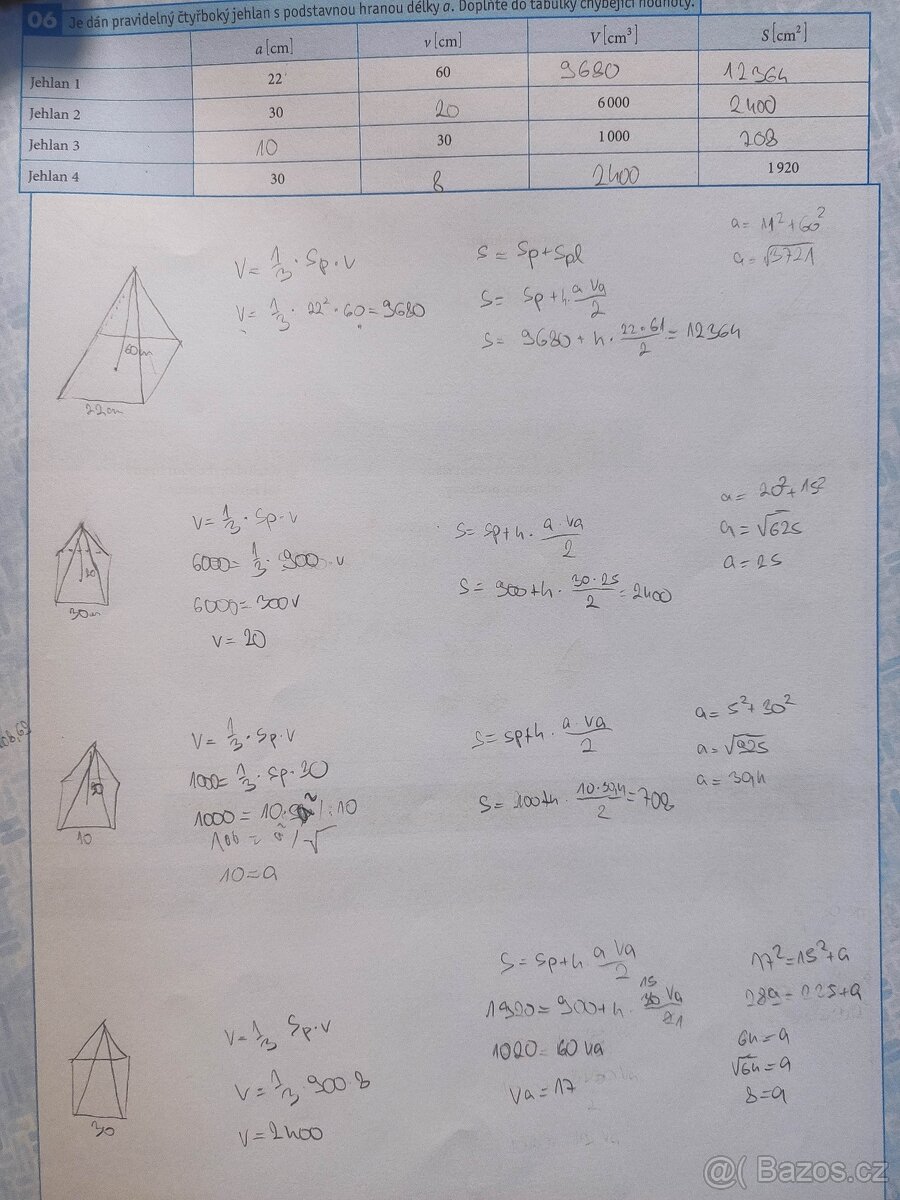 06 Je dán pravidelný čtyřboký jehlan s podstavnou hranou délky a. Doplňte do tabulky chybějící hodnoty.
a [cm] v [cm] V [cm³] S [cm²]
Jehlan 1 22 60 9680 12364
Jehlan 2 30 20 6 000 2400
Jehlan 3 10 30 1 000 208
Jehlan 4 30 8 2400 1 920
a = 11² + 60²
a = √3721
V = 1/3 · Sp · v
V = 1/3 · 22² · 60 = 9680
S = Sp + Spl
S = Sp + 4 · a va/2
S = 9680 + 4 · 22·61/2 = 12364
60cm
22cm
V = 1/3 · Sp · v
6000 = 1/3 · 900 · v
6000 = 300v
v = 20
S = Sp + 4 · a·va/2
S = 900 + 4 · 30·25/2 = 2400
a = 20² + 15²
a = √625
a = 25
20
30cm
V = 1/3 · Sp · v
1000 = 1/3 · Sp · 30
1000 = 10 · a² /:10
100 = a² /√
10 = a
S = Sp + 4 · a·va/2
S = 100 + 4 · 10·30,4/2 = 708
a = 5² + 30²
a = √925
a = 30,4
30
10
V = 1/3 Sp · v
V = 1/3 900 8
V = 2400
S = Sp + 4 · a va/2
1920 = 900 + 4 · 30 va/2
1020 = 60 va
va = 17
17² = 15² + a
289 = 225 + a
64 = a
√64 = a
8 = a
30
@( Bazos.cz